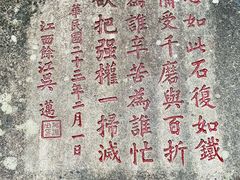 如此石復如鐵
受千磨與百折
為誰辛苦為誰忙
欲把強權一掃滅
華民國二十三年二月一日
江西餘江吳邁